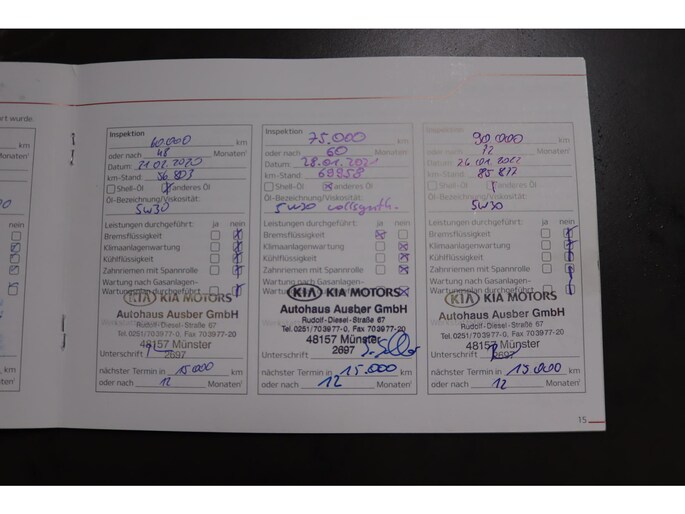 ort wurde
Inspektion
60.000 km
oder nach 48 Monaten¹
Datum 21.02.2020
km-Stand 56 803
Shell-Öl anderes Öl
Öl-Bezeichnung/Viskosität:
5W30
Leistungen durchgeführt: ja nein
Bremsflüssigkeit
Klimaanlagenwartung
Kühlflüssigkeit
Zahnriemen mit Spannrolle
Wartung nach Gasanlagen-
KIA KIA MOTORS
Autohaus Ausber GmbH
Rudolf-Diesel-Straße 67
Tel. 0251/703977-0, Fax 703977-20
48157 Münster
Unterschrift 2697
nächster Termin in 15000 km
oder nach 12 Monaten¹
Inspektion
75.000 km
oder nach 60 Monaten¹
Datum 28.01.2021
km-Stand 69958
Shell-Öl anderes Öl
Öl-Bezeichnung/Viskosität:
5W30 vollsynth.
Leistungen durchgeführt: ja nein
Bremsflüssigkeit
Klimaanlagenwartung
Kühlflüssigkeit
Zahnriemen mit Spannrolle
Wartung nach Gasanlagen-
KIA KIA MOTORS
Autohaus Ausber GmbH
Rudolf-Diesel-Straße 67
Tel. 0251/703977-0, Fax 703977-20
48157 Münster
Unterschrift 2697
nächster Termin in 15.000 km
oder nach 12 Monaten¹
Inspektion
90.000 km
oder nach 12 Monaten¹
Datum 26.01.2022
km-Stand 85 877
Shell-Öl anderes Öl
Öl-Bezeichnung/Viskosität:
5W30
Leistungen durchgeführt: ja nein
Bremsflüssigkeit
Klimaanlagenwartung
Kühlflüssigkeit
Zahnriemen mit Spannrolle
Wartung nach Gasanlagen-
KIA KIA MOTORS
Autohaus Ausber GmbH
Rudolf-Diesel-Straße 67
Tel. 0251/703977-0, Fax 703977-20
48157 Münster
Unterschrift 2697
nächster Termin in 15000 km
oder nach 12 Monaten¹
15